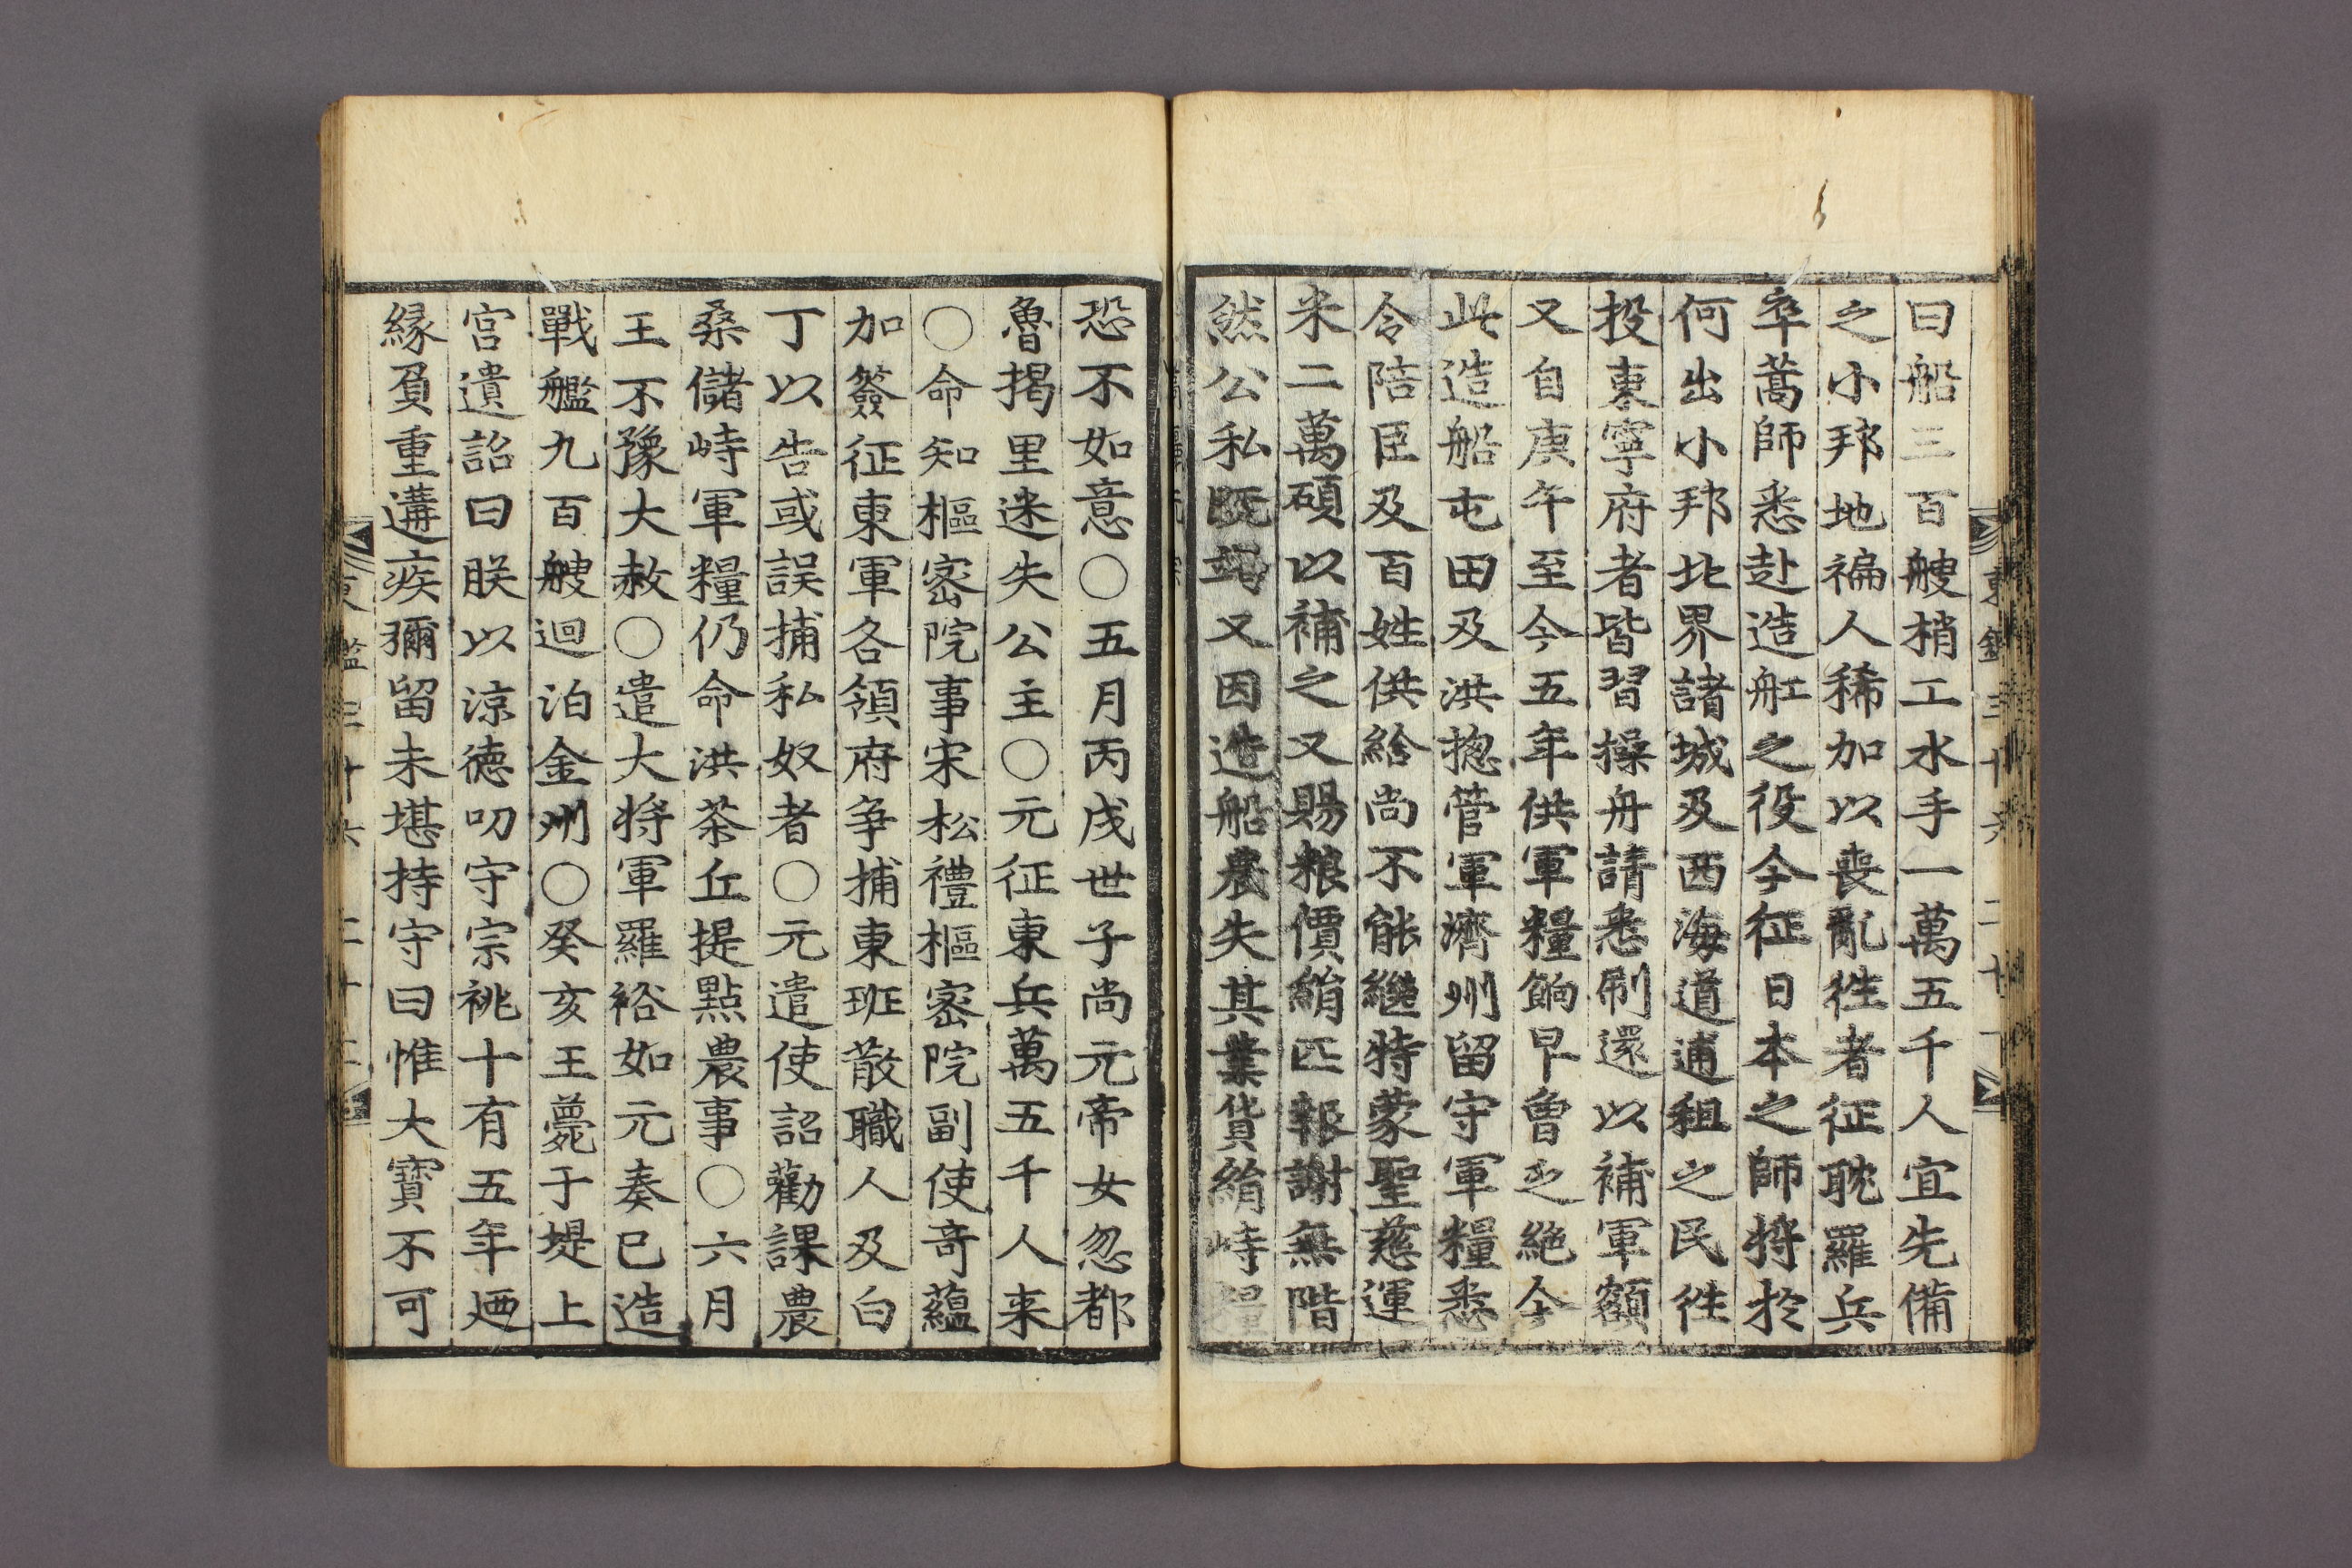 曰船三百艘梢工水手一萬五千人宜先備
之小邦地褊人稀加以喪亂徃者征耽羅兵
卒蒿師悉赴造舡之役今征日本之師将於
何出小邦北界諸城及西海道逋租之民徃
投東寧府者皆習操舟請悉刷還以補軍額
又自庚午至今五年供軍糧餉早曾乏絶今
此造船屯田及洪揔管軍濟州留守軍糧悉
令陪臣及百姓供給尚不能繼特蒙聖慈運
米二萬碩以補之又賜粮價絹匹報謝無階
然公私既竭又因造船農失其業貨絹峙糧
東鑑三十六 二十一
恐不如意〇五月丙戌世子尚元帝女忽都
魯揭里迷失公主〇元征東兵萬五千人来
〇命知樞密院事宋松禮樞密院副使奇蘊
加簽征東軍各領府争捕東班散職人及白
丁以告或誤捕私奴者〇元遣使詔勸課農
桑儲峙軍糧仍命洪茶丘提點農事〇六月
王不豫大赦〇遣大将軍羅裕如元奏已造
戰艦九百艘迴泊金州〇癸亥王薨于堤上
宮遺詔曰朕以涼德叨守宗祧十有五年廼
縁負重遘疾彌留未堪持守曰惟大寶不可